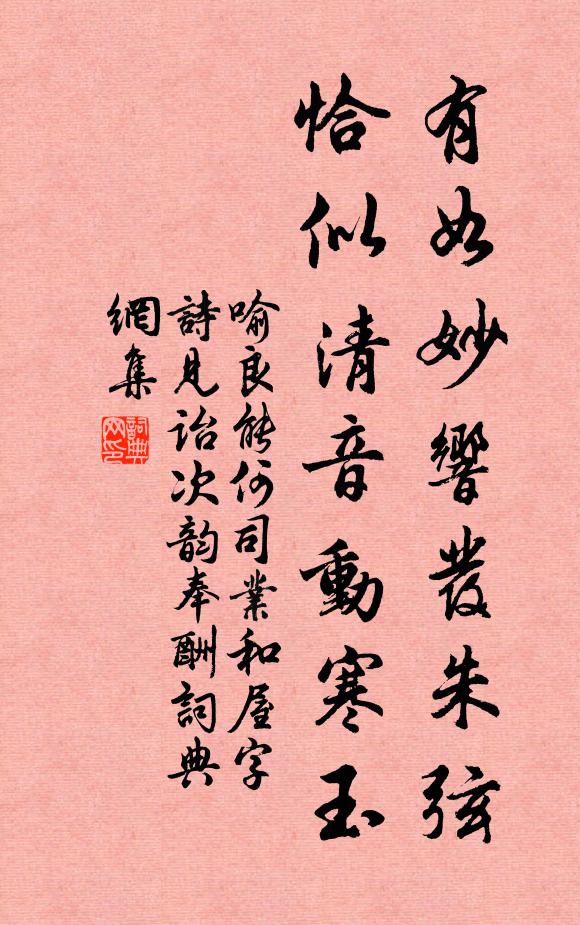 有如妙響發朱弦
恰似清音動寒玉
喻良能何司業和屋字
詩見詒次韵奉酬詞典
網集
詞典網印